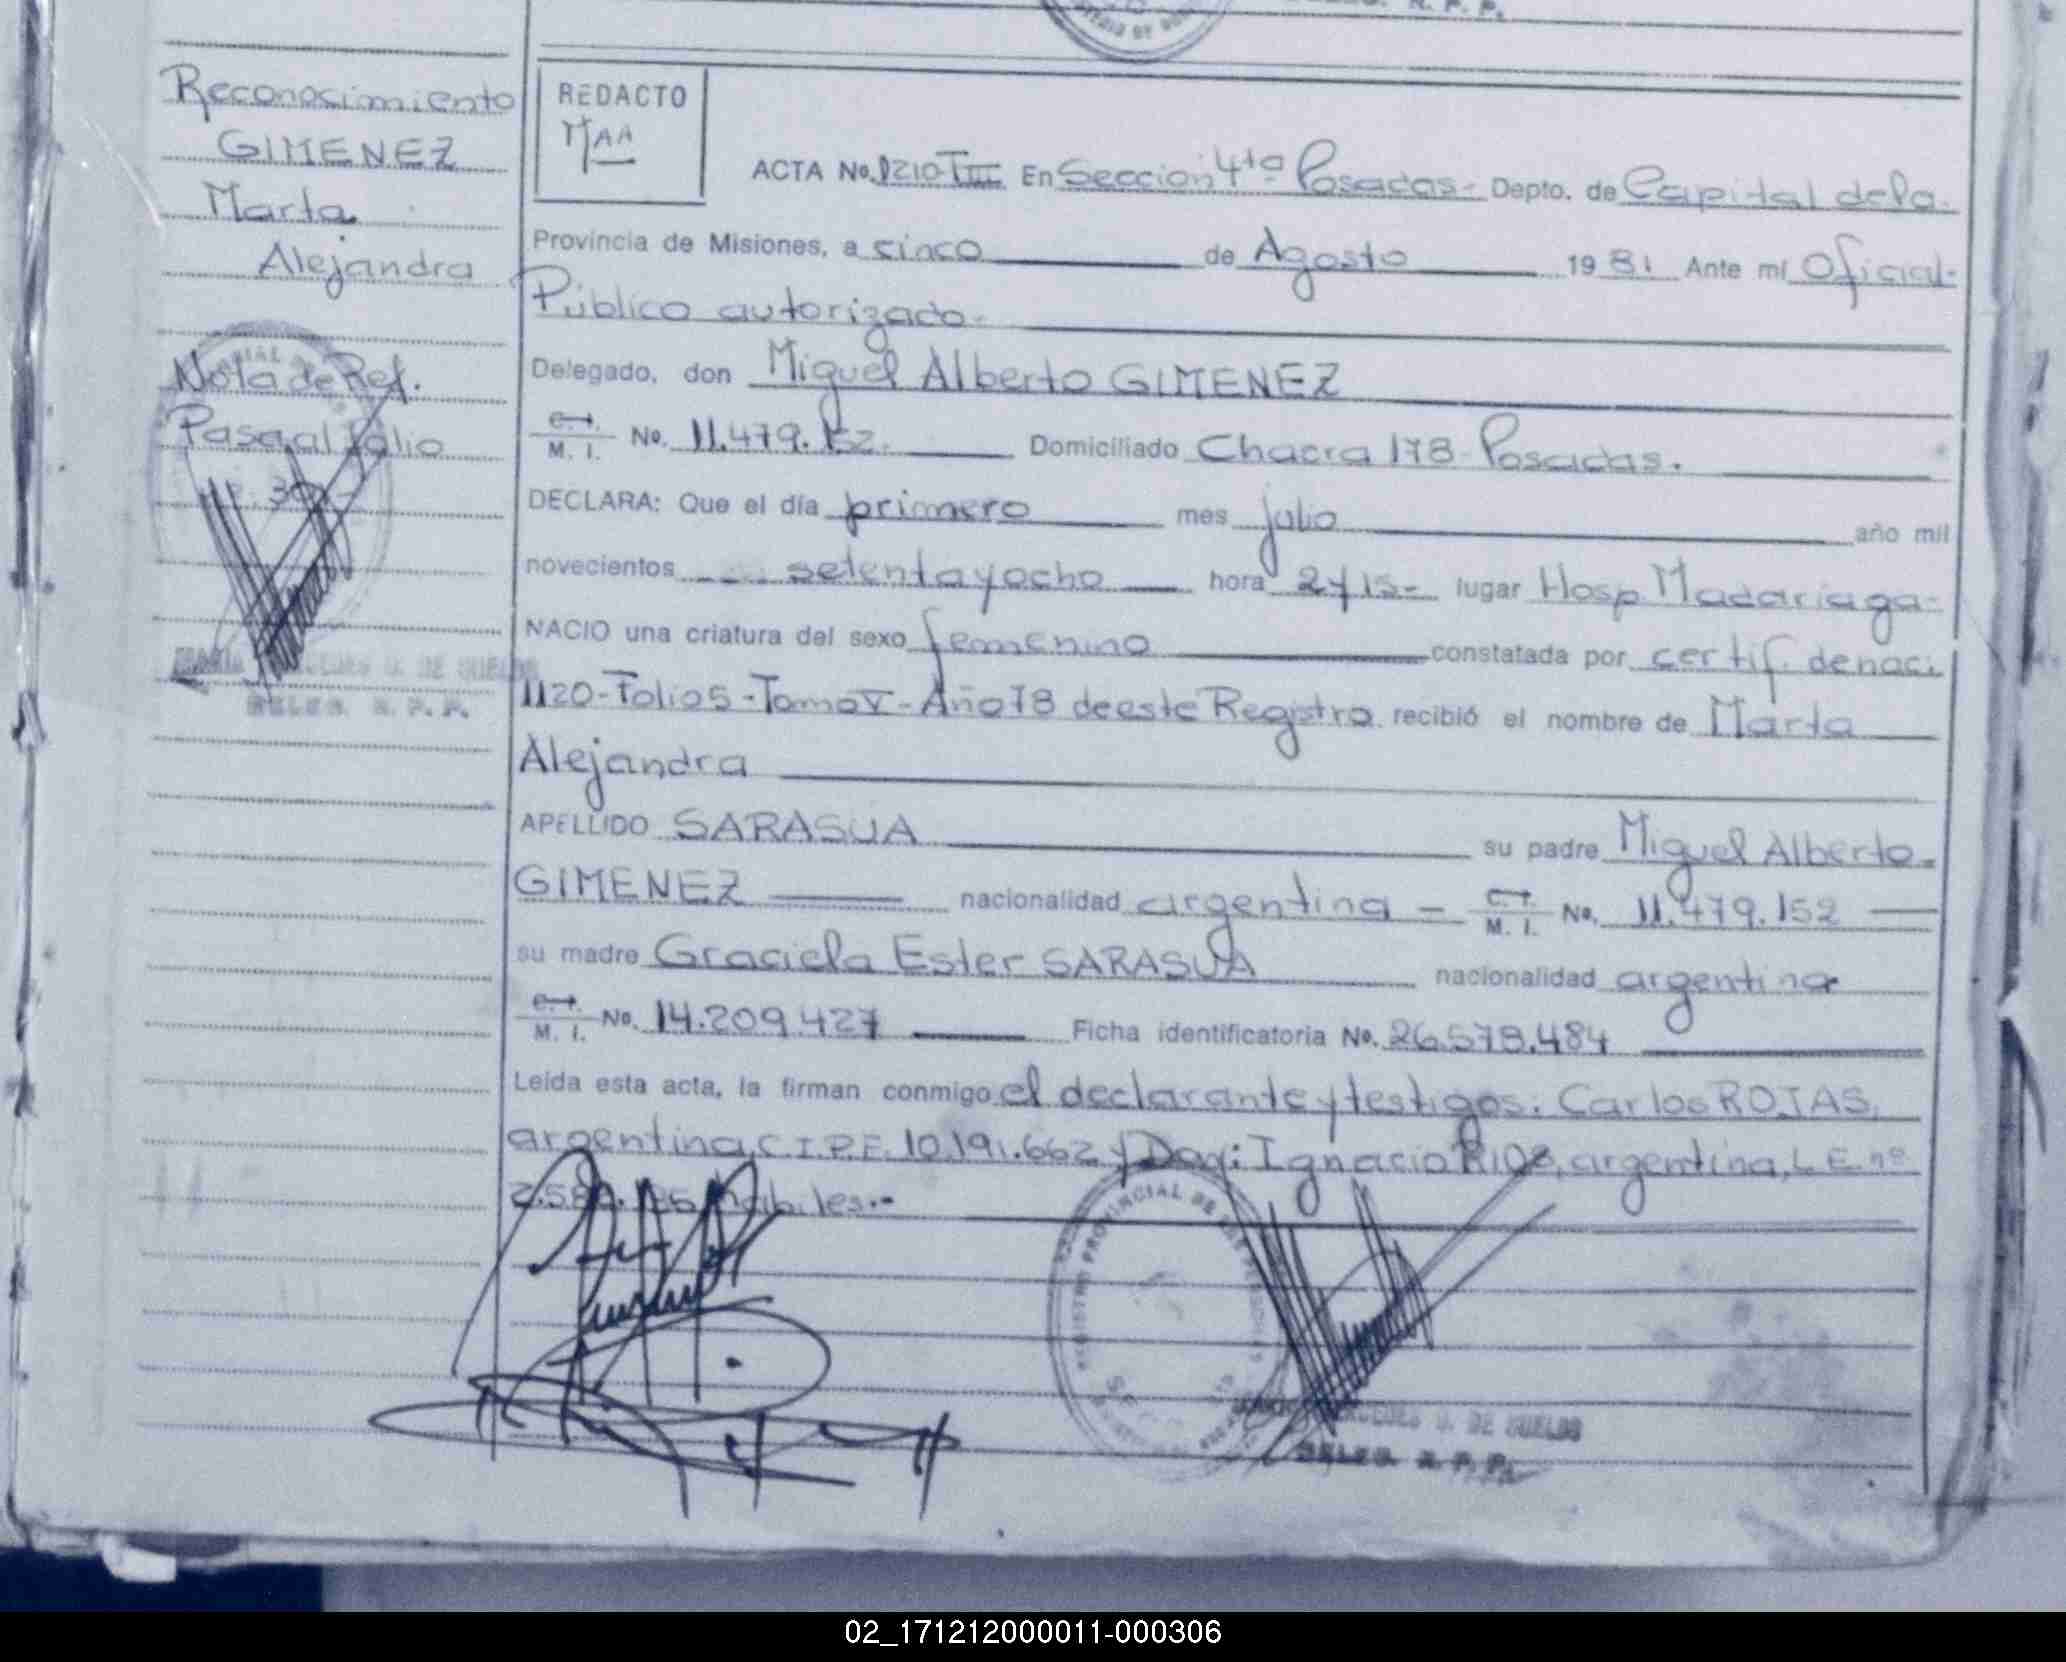 Reconocimiento
GIMENEZ
Marta
Alejandra
Nota de Ref.
Pasa al folio
DE SUELDS
DELEG. R. P. P.
R. P. P.
REDACTO
MAA
ACTA No. 1210 T III En Sección 4ta Posadas- Depto. de Capital dela
Provincia de Misiones, a cinco de Agosto 1981 Ante mí Oficial-
Público autorizado-
Delegado, don Miguel Alberto GIMENEZ
M. I. No. 11.479.152. Domiciliado Chacra 178-Posadas.
DECLARA: Que el día primero mes julio año mil
novecientos setentayocho hora 2y15- lugar Hosp. Madariaga-
NACIO una criatura del sexo femenino constatada por certif. denaci.
1120-Folio5-TomoV-Año78 deeste Registro recibió el nombre de Marta
Alejandra
APELLIDO SARASUA su padre Miguel Alberto-
GIMENEZ nacionalidad argentina - M. I. No. 11.479.152
su madre Graciela Ester SARASUA nacionalidad argentina
M. I. No. 14.209.427 Ficha identificatoria No. 26.578.484
Leída esta acta, la firman conmigo el declarante y testigos: Carlos ROJAS,
argentina, C.I.P.E. 10.191.662 y Don: Ignacio RIOS, argentina, L.E. nº
hábiles.-
REGISTRO PROVINCIAL DE
DE SUELDS
DELEG. R. P. P.
02_171212000011-000306